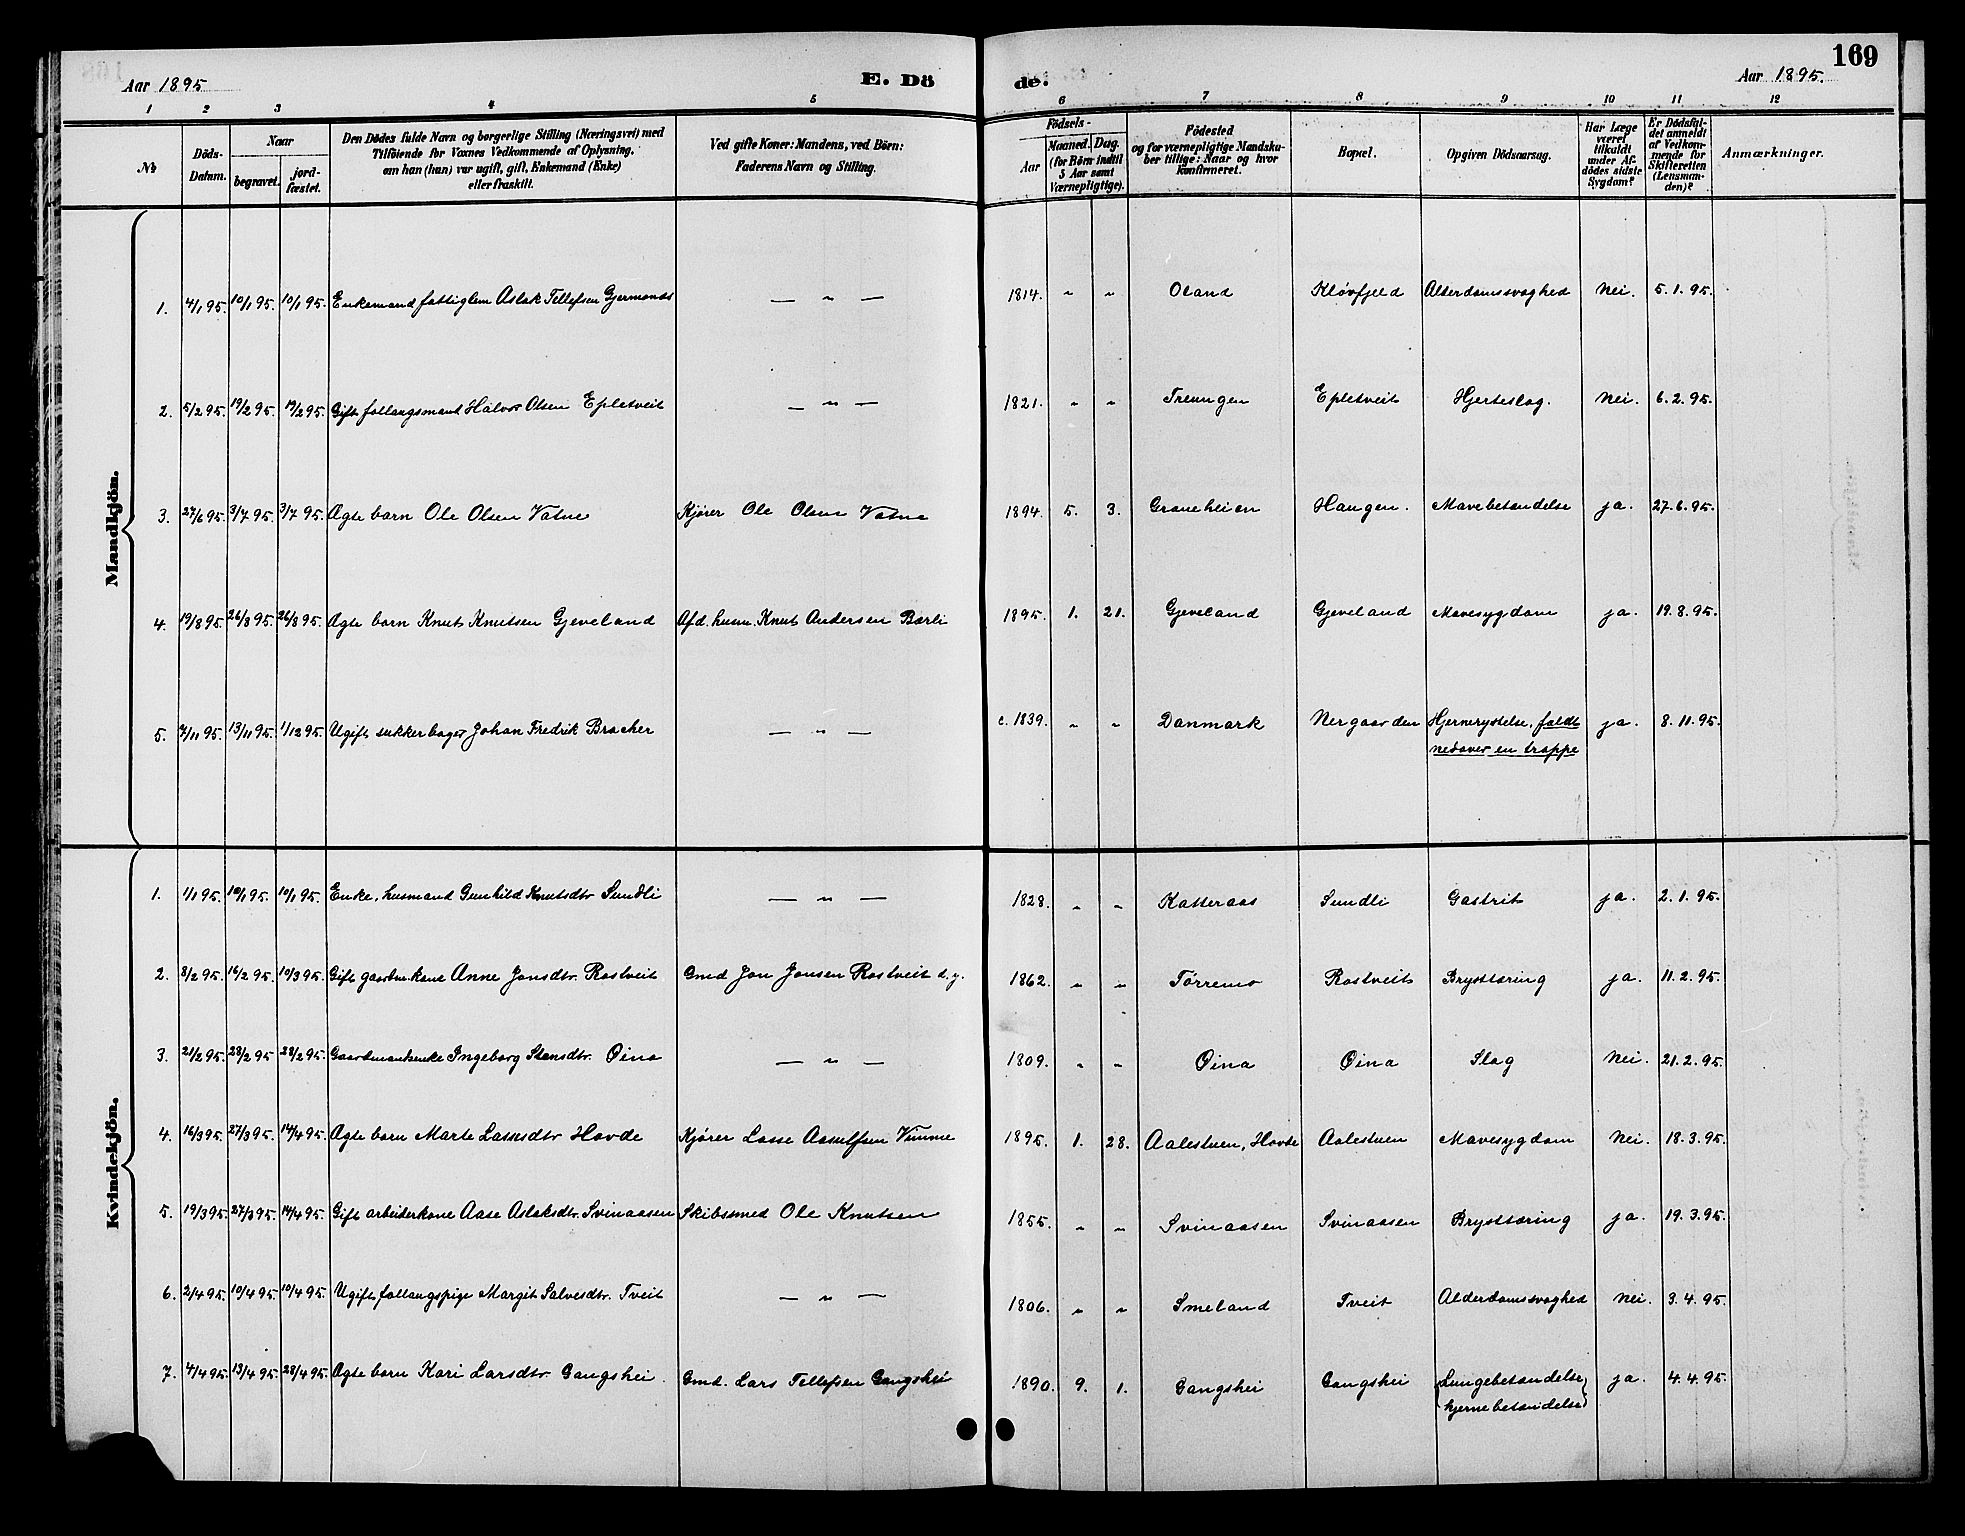 169
Aar 1895 E. Dö de. Aar 1895.
1 2 3 4 5 6 7 8 9 10 11 12
№ Döds-Datum. Naar begravet. jord-fæstet. Den Dödes fulde Navn og borgerlige Stilling (Næringsvei) med Tilföiende for Voxnes Vedkommende af Oplysning, om han (hun) var ugift, gift, Enkemand (Enke) eller fraskilt. Ved gifte Koner: Mandens, ved Börn: Faderens Navn og Stilling. Födsels- Aar Maaned. Dag. (for Börn indtil 5 Aar samt Værnepligtige). Födested og for værnepligtige Mandskaber tillige: Naar og hvor konfirmeret. Bopæl. Opgiven Dödsaarsag. Har Læge været tilkaldt under Afdödes sidste Sygdom? Er Dödsfaldet anmeldt af Vedkommende for Skifteretten (Lensmanden)? Anmærkninger.
Mandkjön.
1. 4/1 95. 10/1 95. 10/1 95. Enkemand fattiglem Aslak Tellefsen Gjermonds — „ — 1814. „ „ Oland Kløvfjeld Alderdomssvaghed Nei. 5. 1. 95.
2. 5/2 95. 19/2 95. 19/2 95. Gift follaugsmand Halvor Olsen Epletveit — „ — 1821. „ „ Treungen Epletveit Hjerteslag. Nei. 6. 2. 95.
3. 27/6 95. 3/7 95. 3/7 95. Ægte barn Ole Olsen Vatne Kjører Ole Olsen Vatne 1894. 5. 3. Graneheien Haugen. Mavebetændelse ja. 27. 6. 95.
4. 19/8 95. 26/8 95. 26/8 95. Ægte barn Knut Knutsen Gjeveland Afd. husm. Knut Andersen Bærli 1895. 1. 21. Gjeveland Gjeveland Mavesygdom ja. 19. 8. 95.
5. 7/11 95. 13/11 95. 1/12 95. Ugift sukkerbager Johan Fredrik Bracher — „ — c. 1839. „ „ Danmark Nergaarden Hjernerystelse, faldt ja. 8. 11. 95.
nedover en trappe
Kvindekjön.
1. 1/1 95. 10/1 95. 10/1 95. Enke, husmand Gunhild Knutsdtr Sundli — „ — 1828. „ „ Katteraas Sundli Gastrit ja. 2. 1. 95.
2. 8/2 95. 16/2 95. 10/3 95. Gift gaardm. kone Anne Jonsdtr. Rostveit Gmd Jon Jonsen Rostveit d. y. 1862. „ „ Tørremo Rostveit Brysttæring ja. 11. 2. 95.
3. 21/2 95. 28/2 95 28/2 95. Gaardmanksenke Ingeborg Stensdtr. Øina — „ — 1809. „ „ Øina Øina Slag Nei. 21. 2. 95.
4. 16/3 95. 27/3 95. 14/4 95. Ægte barn Marte Lassesdtr Hovde Kjører Lasse Aanulfsen Vimme 1895. 1. 28. Aalestuen, Hovde Aalestuen Mavesygdom Nei. 18. 3. 95.
5. 19/3 95. 27/3 95. 14/4 95. Gift arbeiderkone Aase Aslaksdtr. Svinaasen Skibssmed Ole Knutsen 1855. „ „ Svinaasen Svinaasen Brysttæring ja. 19. 3. 95.
6. 2/4 95. 10/4 95. 10/4 95. Ugift follaugspige Margit Salvesdtr. Tveit — „ — 1806. „ „ Smeland Tveit Alderdomssvaghed Nei. 3. 4. 95.
7. 4/4 95. 13/4 95. 28/4 95. Ægte barn Kari Larsdtr. Gangshei. Gmd. Lars Tellefsen Gangshei 1890. 9. 1. Gangshei Gangshei Lungebetændelse ja. 4. 4. 95.
hjernebetændelse